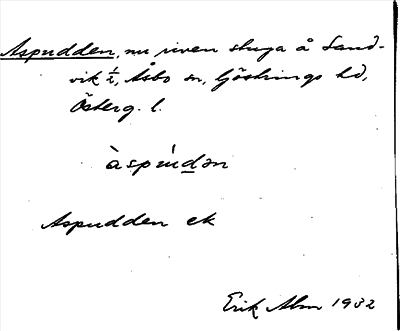 Aspudden, nu riven stuga å Sand-
vik 1/1, Åsbo sn, Göstrings hd,
Österg. l.
àspúdən
Aspudden ek
Erik Alm 1932